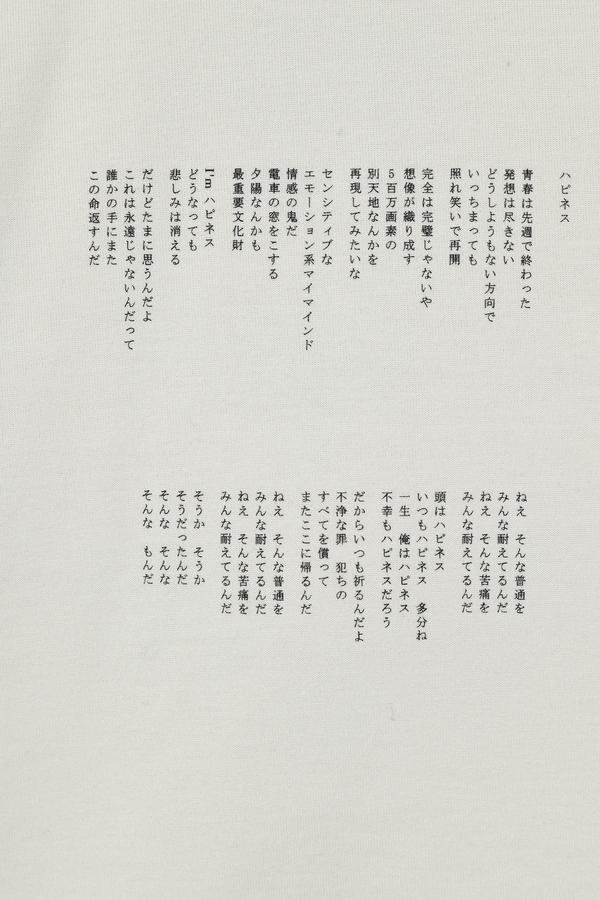 ハピネス
青春は先週で終わった
発想は尽きない
どうしようもない方向で
いっちまっても
照れ笑いで再開
完全は完璧じゃないや
想像が織り成す
5百万画素の
別天地なんかを
再現してみたいな
センシティブな
エモーション系マイマインド
情感の鬼だ
電車の窓をこする
夕陽なんかも
最重要文化財
I'm ハピネス
どうなっても
悲しみは消える
だけどたまに思うんだよ
これは永遠じゃないんだって
誰かの手にまた
この命返すんだ
ねえ そんな普通を
みんな耐えてるんだ
ねえ そんな苦痛を
みんな耐えてるんだ
頭はハピネス
いつもハピネス 多分ね
一生 俺はハピネス
不幸もハピネスだろう
だからいつも祈るんだよ
不浄な罪 犯ちの
すべてを償って
またここに帰るんだ
ねえ そんな普通を
みんな耐えてるんだ
ねえ そんな苦痛を
みんな耐えてるんだ
そうか そうか
そうだったんだ
そんな そんな
そんな もんだ